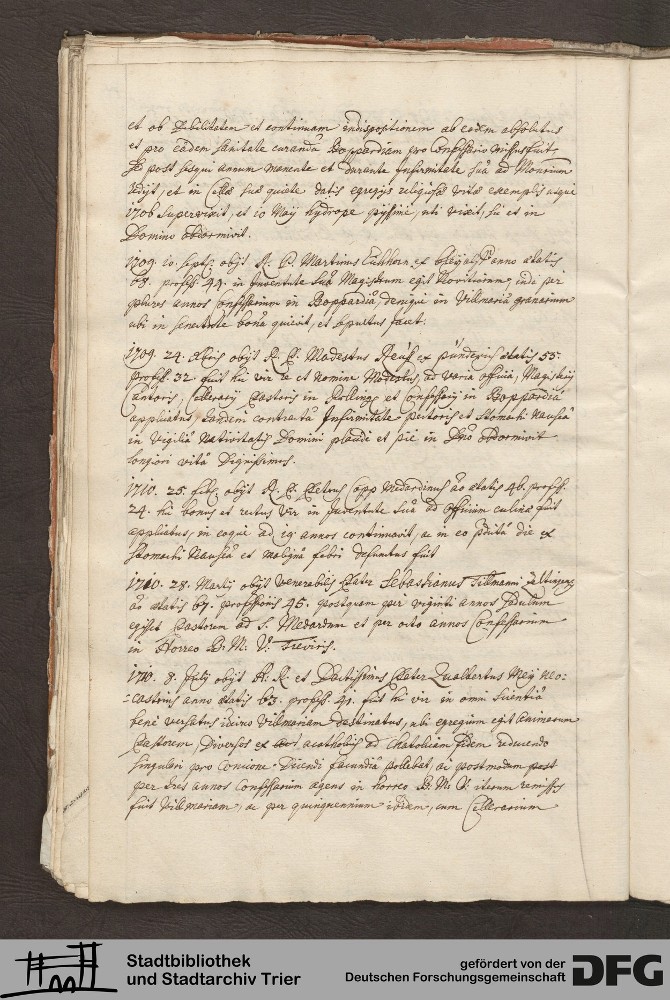 et ob Debilitatem et continuam indispositionem ab eadem absolutus
et pro eadem sanitate curanda Boppardiam pro Confessario missus fuit,
sed post sesqui annum manente et durante Infirmitate sua ad Mon
redijt, et in Cella sua quiete datis egregijs religiosae vitae exemplis usque
1706 supervixit, et 10 Maij hydrope pijssime, uti vixit, sic et in
Domino obdormivit.
1709. 10. obijt R. P. Martinus Eichhorn ex anno aetatis
68. profess. 44. in Juventute sua Magistrum egit Novitiorum, inde per
plures annos Confessarium in Boppardia, denique in Villmaria granarium
ubi in senectute bona quievit, et sepultus jacet.
1709. 24. Xbris obijt R. P. Modestus ex pünderich aetatis 55.
profess. 32. fuit hic vir re et nomine Modestus, ad varia officia, Magistri
Cantoris, Cellerarij Pastoris in Polling et Confessarij in Boppardia
applicatus, tandem contracta Infirmitate pectoris et stomachi Nausea
in Vigilia Nativitatis Domini placide et pie in Dno obdormivit
longiori vita Dignissimus.
1710. 25. obijt R. P. Petrus Copp Medardinus ao aetatis 46. profess.
24. hic bonus et rectus Vir in Juventute sua ad officium culinae fuit
applicatus, in eoque ad 19 annos continuavit, ac in eo die ex
stomachi Nausea et maligna febri defunctus fuit
1710. 28. Martij obijt Venerabilis Pater Sebastianus Tillmanni
ao aetatis 67. professionis 45. postquam per viginti annos sedulum
egisset Pastorem ad S. Medardum et per octo annos Confessarium
in Horreo B. M. V. Treviris.
1710. 8. July obijt A. R. et Doctissimus Pater Qualbertus Meij Neo-
-castrius anno aetatis 63. profess. 41. fuit hic vir in omni scientia
bene versatus ideino Villmariam destinatus, ubi egregium egit animarum
Pastorem Diversos ex acatholicis ad Chatolicam fidem reducendo
singulari pro Concione Dicendi facundia pollebat, ac postmodum post
per tres annos Confessarium agens in horreo B. M. V. iterum remissus
fuit Villmariam, ac per quinquennium ibidem, cum Cellerarium
Stadtbibliothek
und Stadtarchiv Trier
gefördert von der
Deutschen Forschungsgemeinschaft
DFG